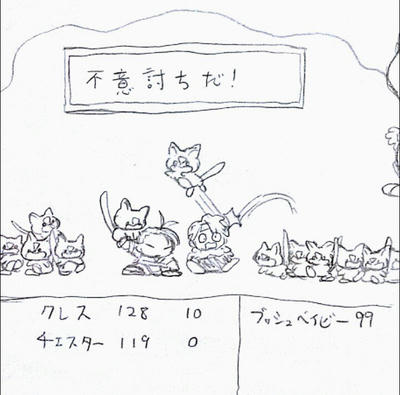 不意討ちだ!
クレス 128 10
チェスター 119 0
ブッシュベイビー 99